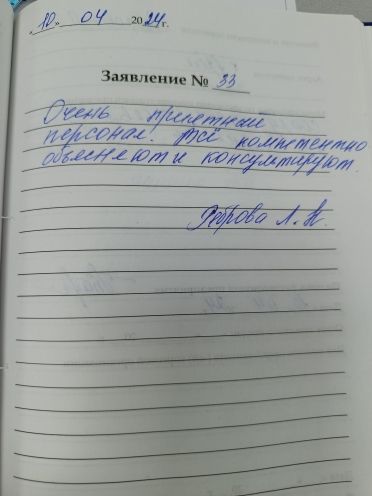 „10" 04 2024 г.
Заявление № 33
Очень приветный
персонал! Всё компетентно
объясняют и консультируют.
Реброва Л. Н.